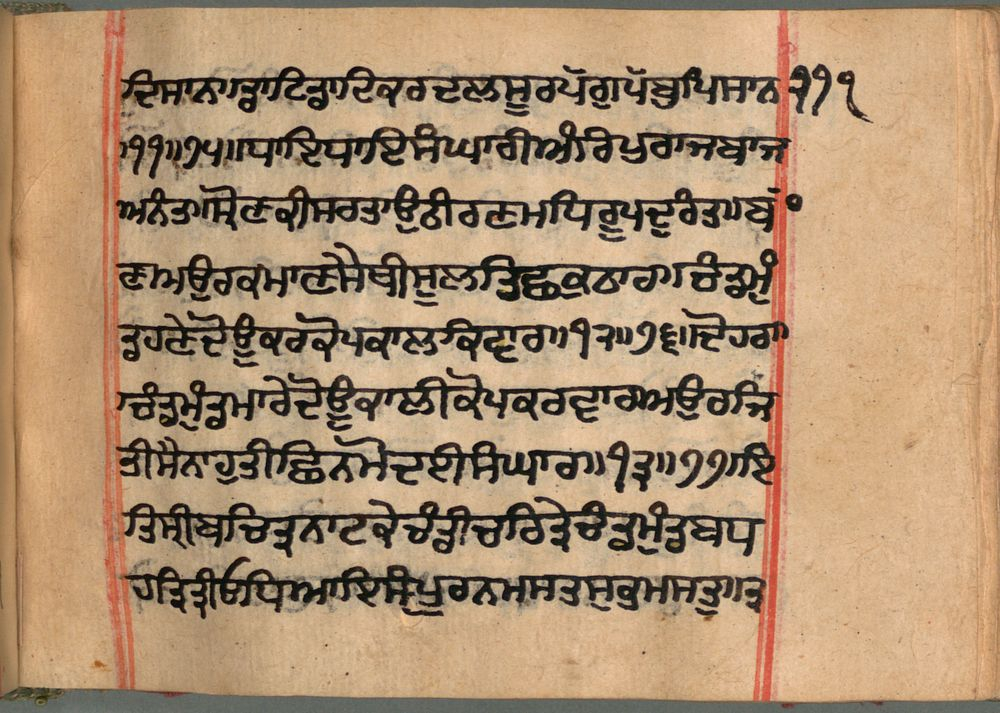 ਦਿਸਾਨ॥ਝਾਟਿਝਾਟਿਕਰਦਲਸੂਰਪੱਗੁਪੱਬੁਪਿਸਾਨ
॥੧੧॥੭੫॥ਧਾਇਧਾਇਸੰਘਾਰੀਅੰਰਿਪੁਰਾਜਬਾਜ
ਅਨੰਤ॥ਸ੍ਰੋਣਕੀਸਰਤਾਉਠੀਰਣਮਧਿਰੂਪਦੁਰੰਤ॥ਬਾ
ਣਅਉਰਕਮਾਣਸੈਥੀਸੂਲਤ੍ਰਿਛਕੁਠਾਰ॥ਚੰਡਮੁੰ
ਡਹਣੇਦੋਊਕਰਕੋਪਕਾਲਕ੍ਰਿਵਾਰ॥੧੨॥੭੬॥ਦੋਹਰਾ॥
ਚੰਡਮੁੰਡਮਾਰੇਦੋਊਕਾਲੀਕੋਪਕਰਵਾਰ॥ਅਉਰਜਿ
ਤੀਸੈਨਾਹੁਤੀਛਿਨਮੋਦਈਸੰਘਾਰ॥੧੩॥੭੭॥ਇ
ਤਿਸ੍ਰੀਬਚਿਤ੍ਰਨਾਟਕੇਚੰਡੀਚਰਿਤ੍ਰੇਚੰਡਮੁੰਡਬਧ
ਹਤ੍ਰਿਤੀਓਧਿਆਇਸੰਪੂਰਨਮਸਤਸੁਭੁਮਸਤੁ॥੩